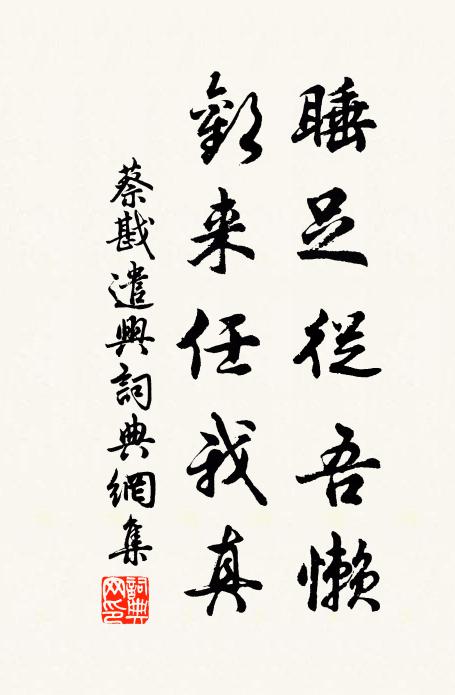 睡足從吾懶
歡来任我真
蔡戡遣興詞典網集
詞典
网印